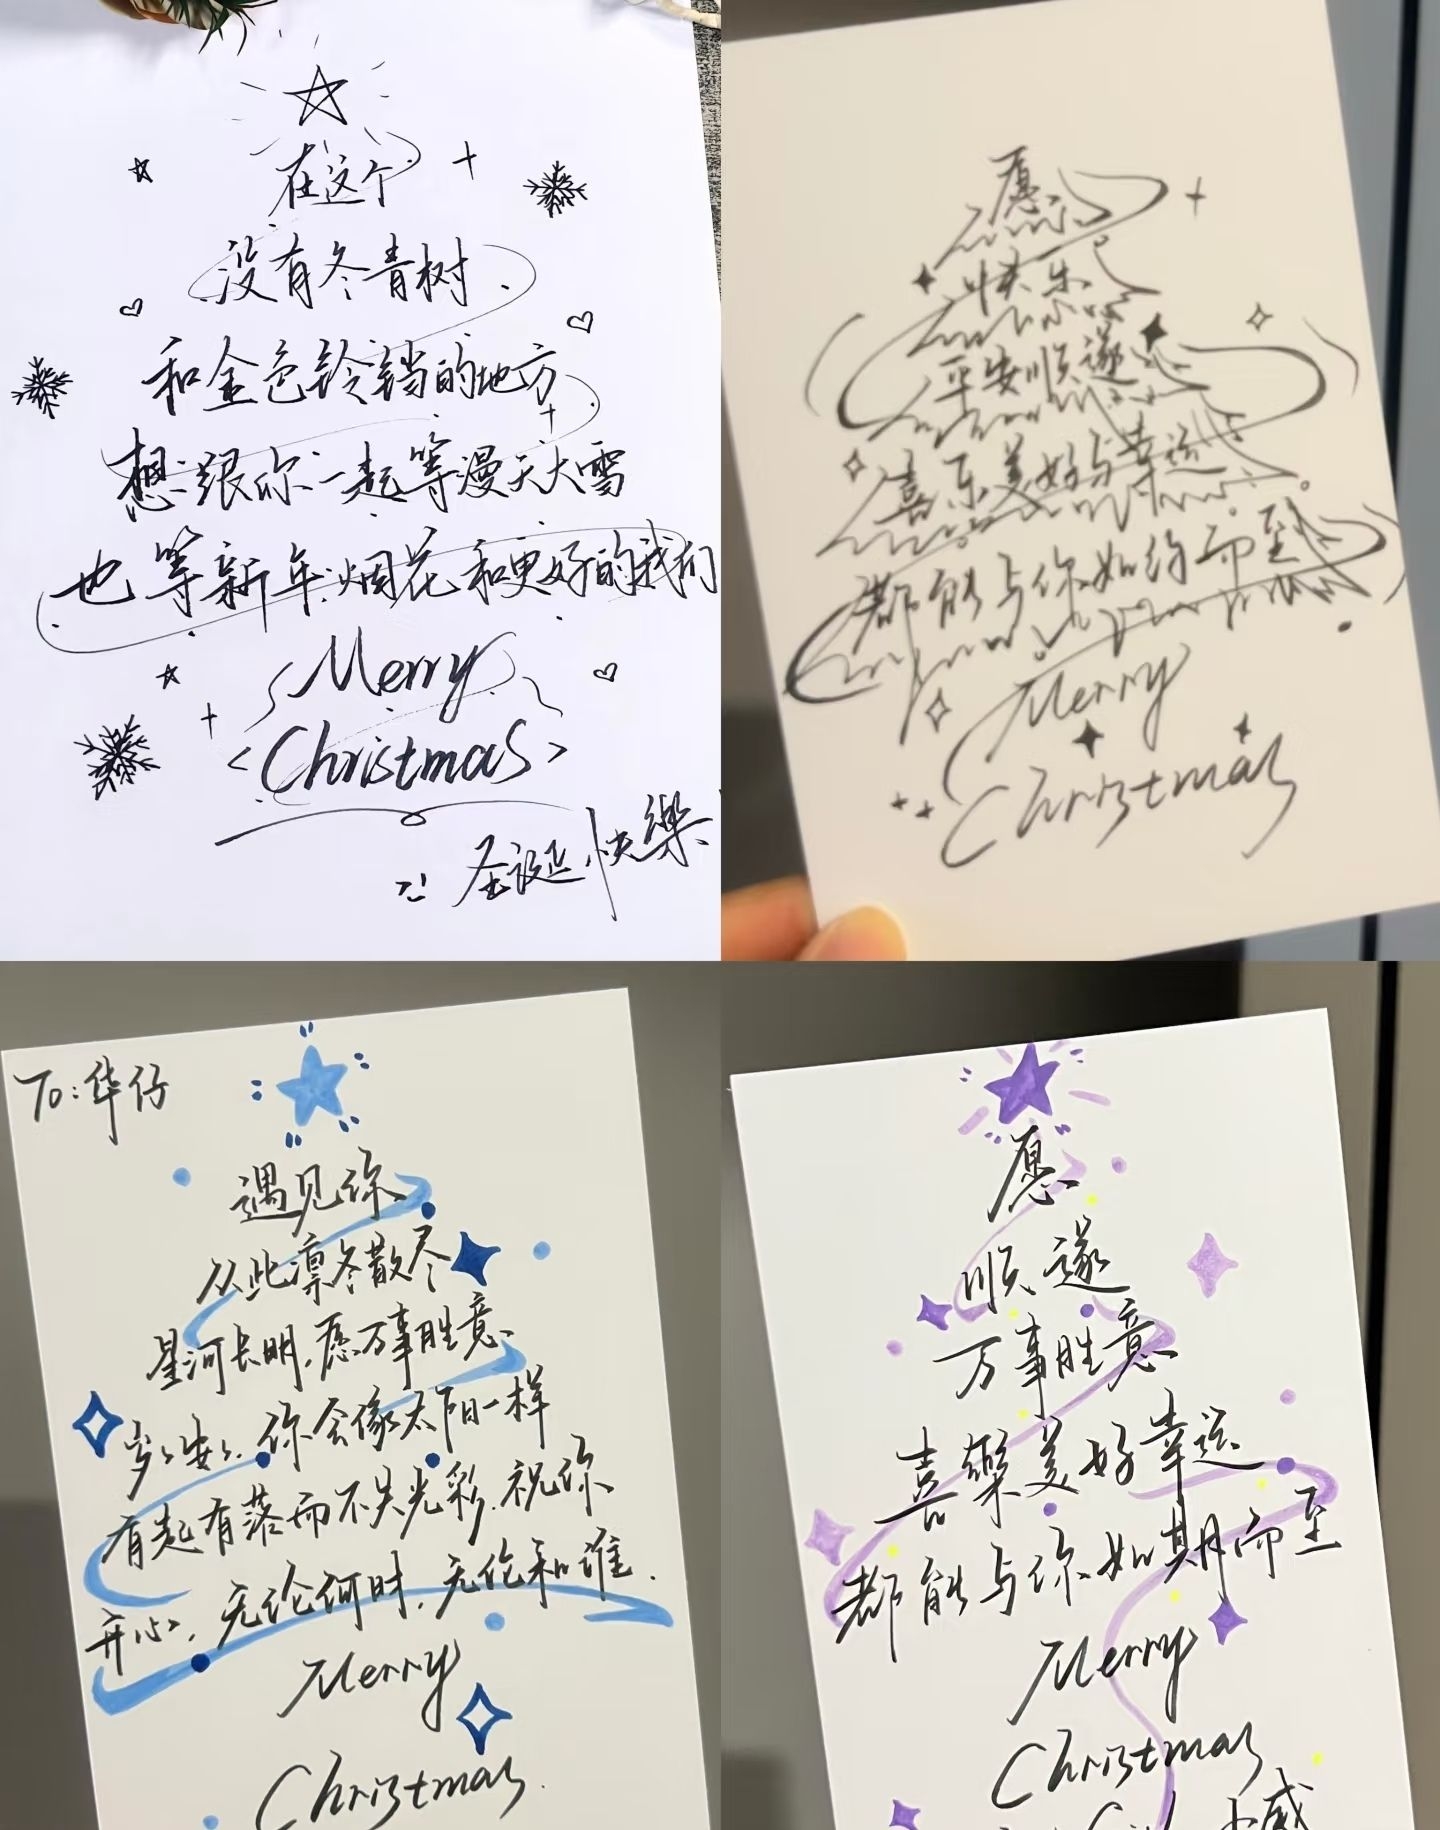 在这个
没有冬青树
和金色铃铛的地方
想跟你一起等漫天大雪
也等新年烟花和更好的我们
Merry
Christmas
圣诞快樂
愿你
快乐
平安顺遂
喜乐美好与幸运
都能与你如约而至
Merry
Christmas
To:华仔
遇见你
从此凛冬散尽
星河长明,愿万事胜意
岁岁安安.你会像太阳一样
有起有落而不失光彩.祝你
开心,无论何时,无论和谁.
Merry
Christmas.
愿
顺遂
万事胜意
喜樂美好幸运
都能与你如期而至
Merry
Christmas